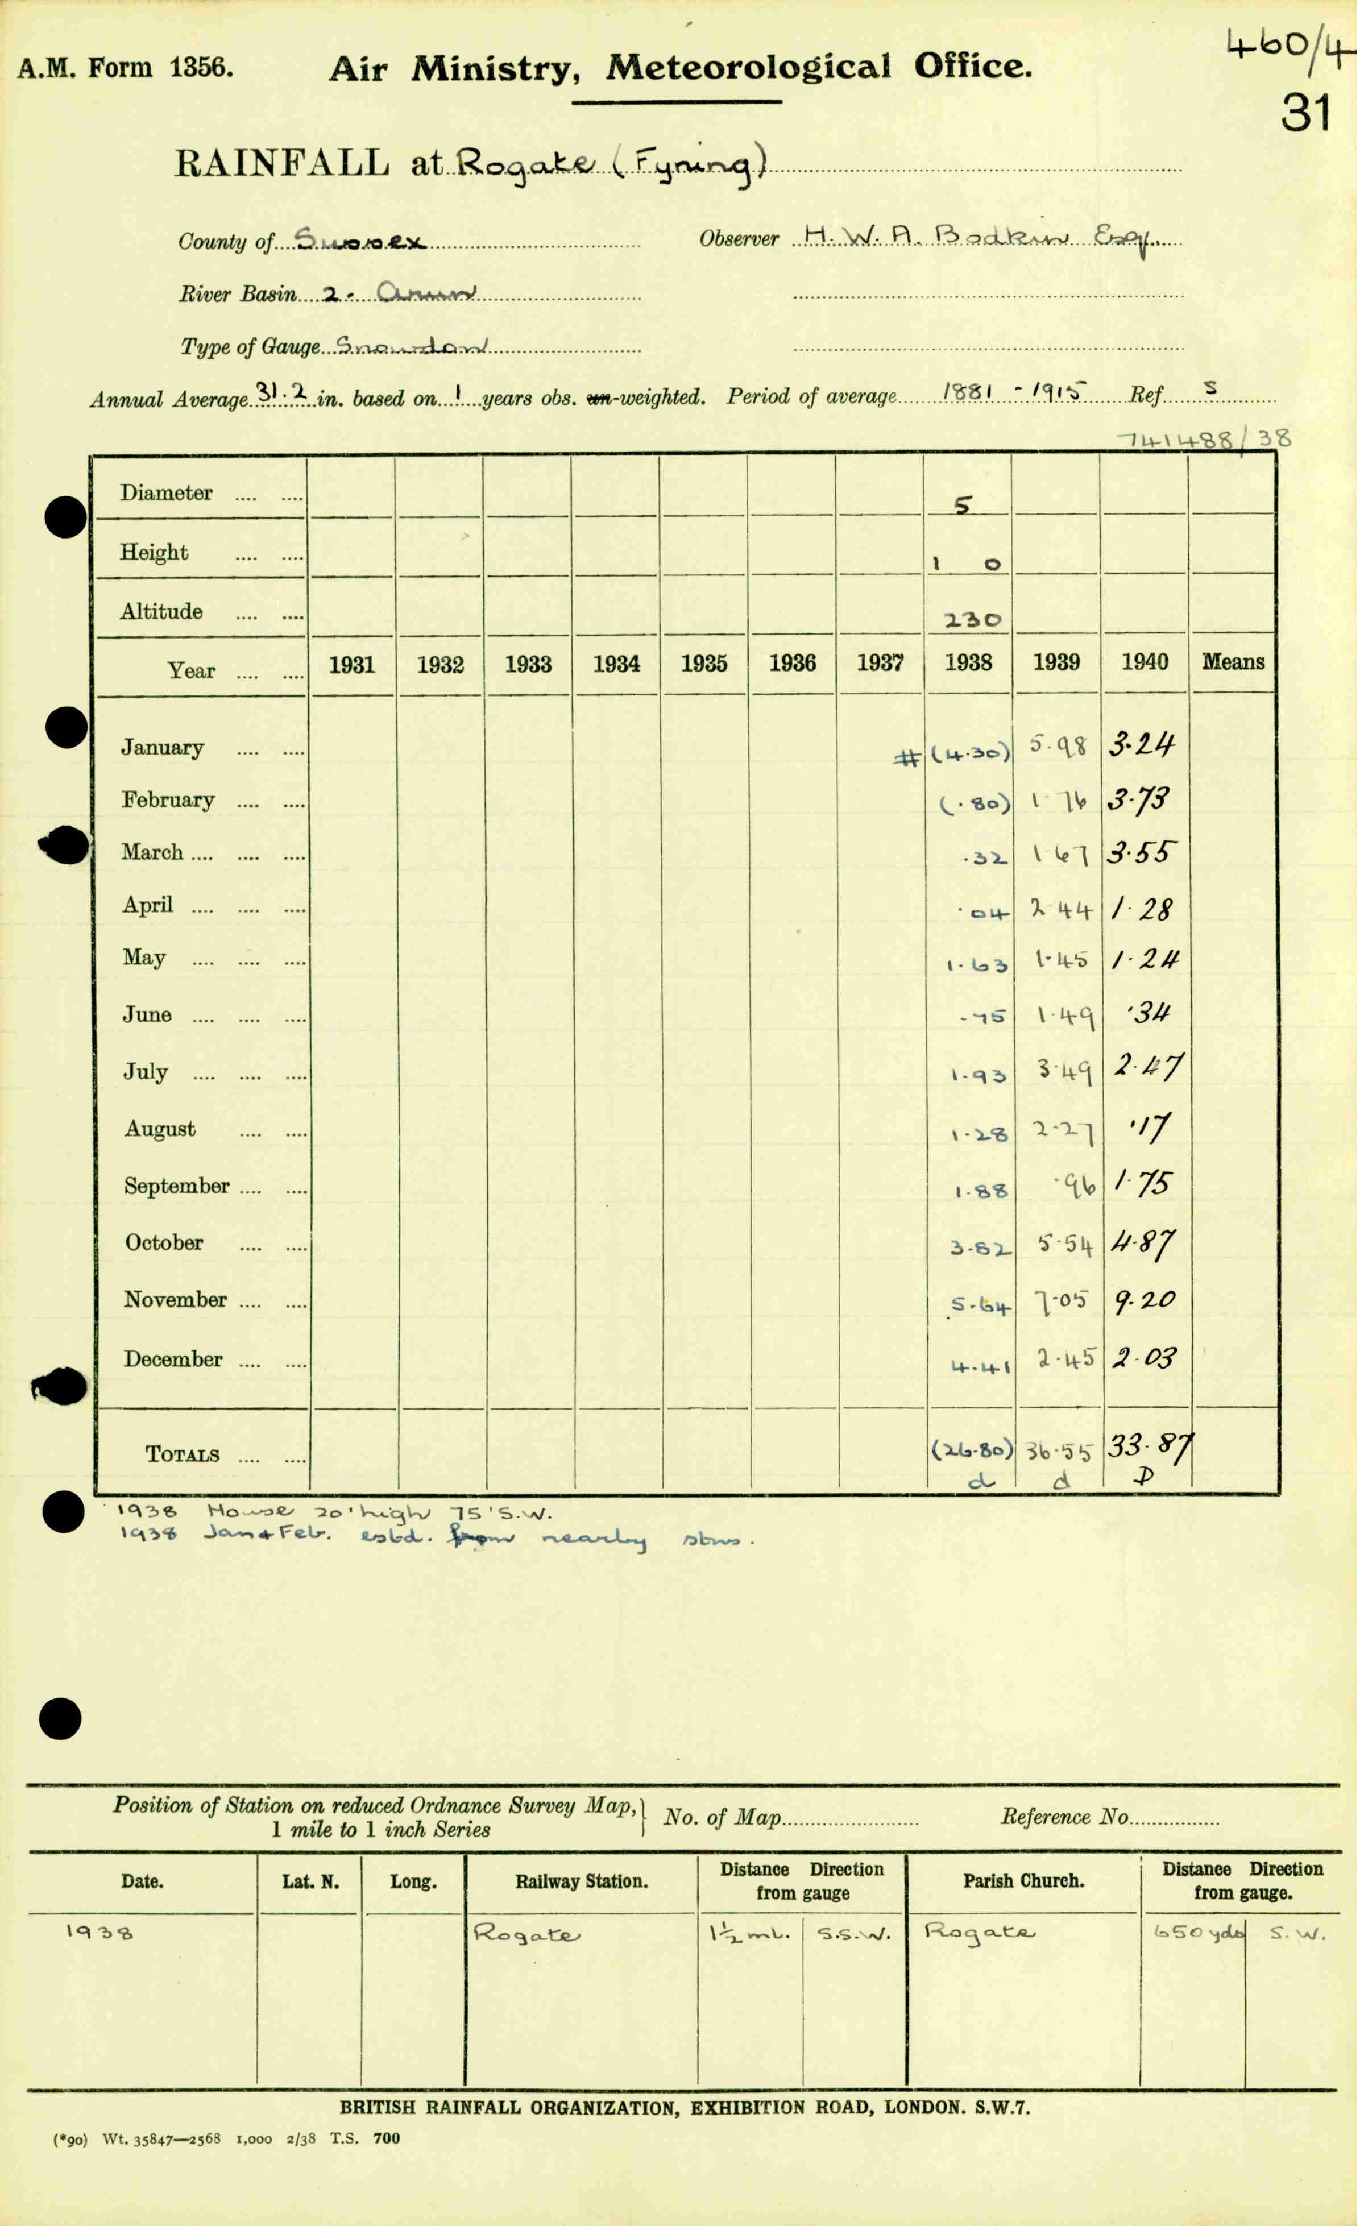 460/4
A.M. Form 1356. Air Ministry, Meteorological Office.
31
RAINFALL at Rogate (Fyning)
County of Sussex Observer H. W. A. Bodkin Esq.
River Basin 2. Arun
Type of Gauge Snowdon
Annual Average 31.2 in. based on 1 years obs. un-weighted. Period of average 1881 - 1915 Ref. S
741488/38
Diameter .... .... 5
Height .... .... 1 0
Altitude .... .... 230
Year .... .... 1931 1932 1933 1934 1935 1936 1937 1938 1939 1940 Means
January .... .... # (4.30) 5.98 3.24
February .... .... (.80) 1 76 3.73
March .... .... .... .32 1 67 3.55
April .... .... .... .04 2 44 1.28
May .... .... .... 1.63 1.45 1.24
June .... .... .... .75 1.49 .34
July .... .... .... 1.93 3.49 2.47
August .... .... 1.28 2.27 .17
September .... .... 1.88 .96 1.75
October .... .... 3.82 5.54 4.87
November .... .... 5.64 7.05 9.20
December .... .... 4.41 2.45 2.03
TOTALS .... .... (26.80) 36.55 33.87
d d D
1938 House 20' high 75' S.W.
1938 Jan & Feb. estd. from nearby stns.
Position of Station on reduced Ordnance Survey Map, No. of Map Reference No.
1 mile to 1 inch Series
Date. Lat. N. Long. Railway Station. Distance Direction from gauge Parish Church. Distance Direction from gauge.
1938 Rogate 1½ ml. S.S.W. Rogate 650 yds S.W.
BRITISH RAINFALL ORGANIZATION, EXHIBITION ROAD, LONDON. S.W.7.
(*90) Wt. 35847—2568 1,000 2/38 T.S. 700